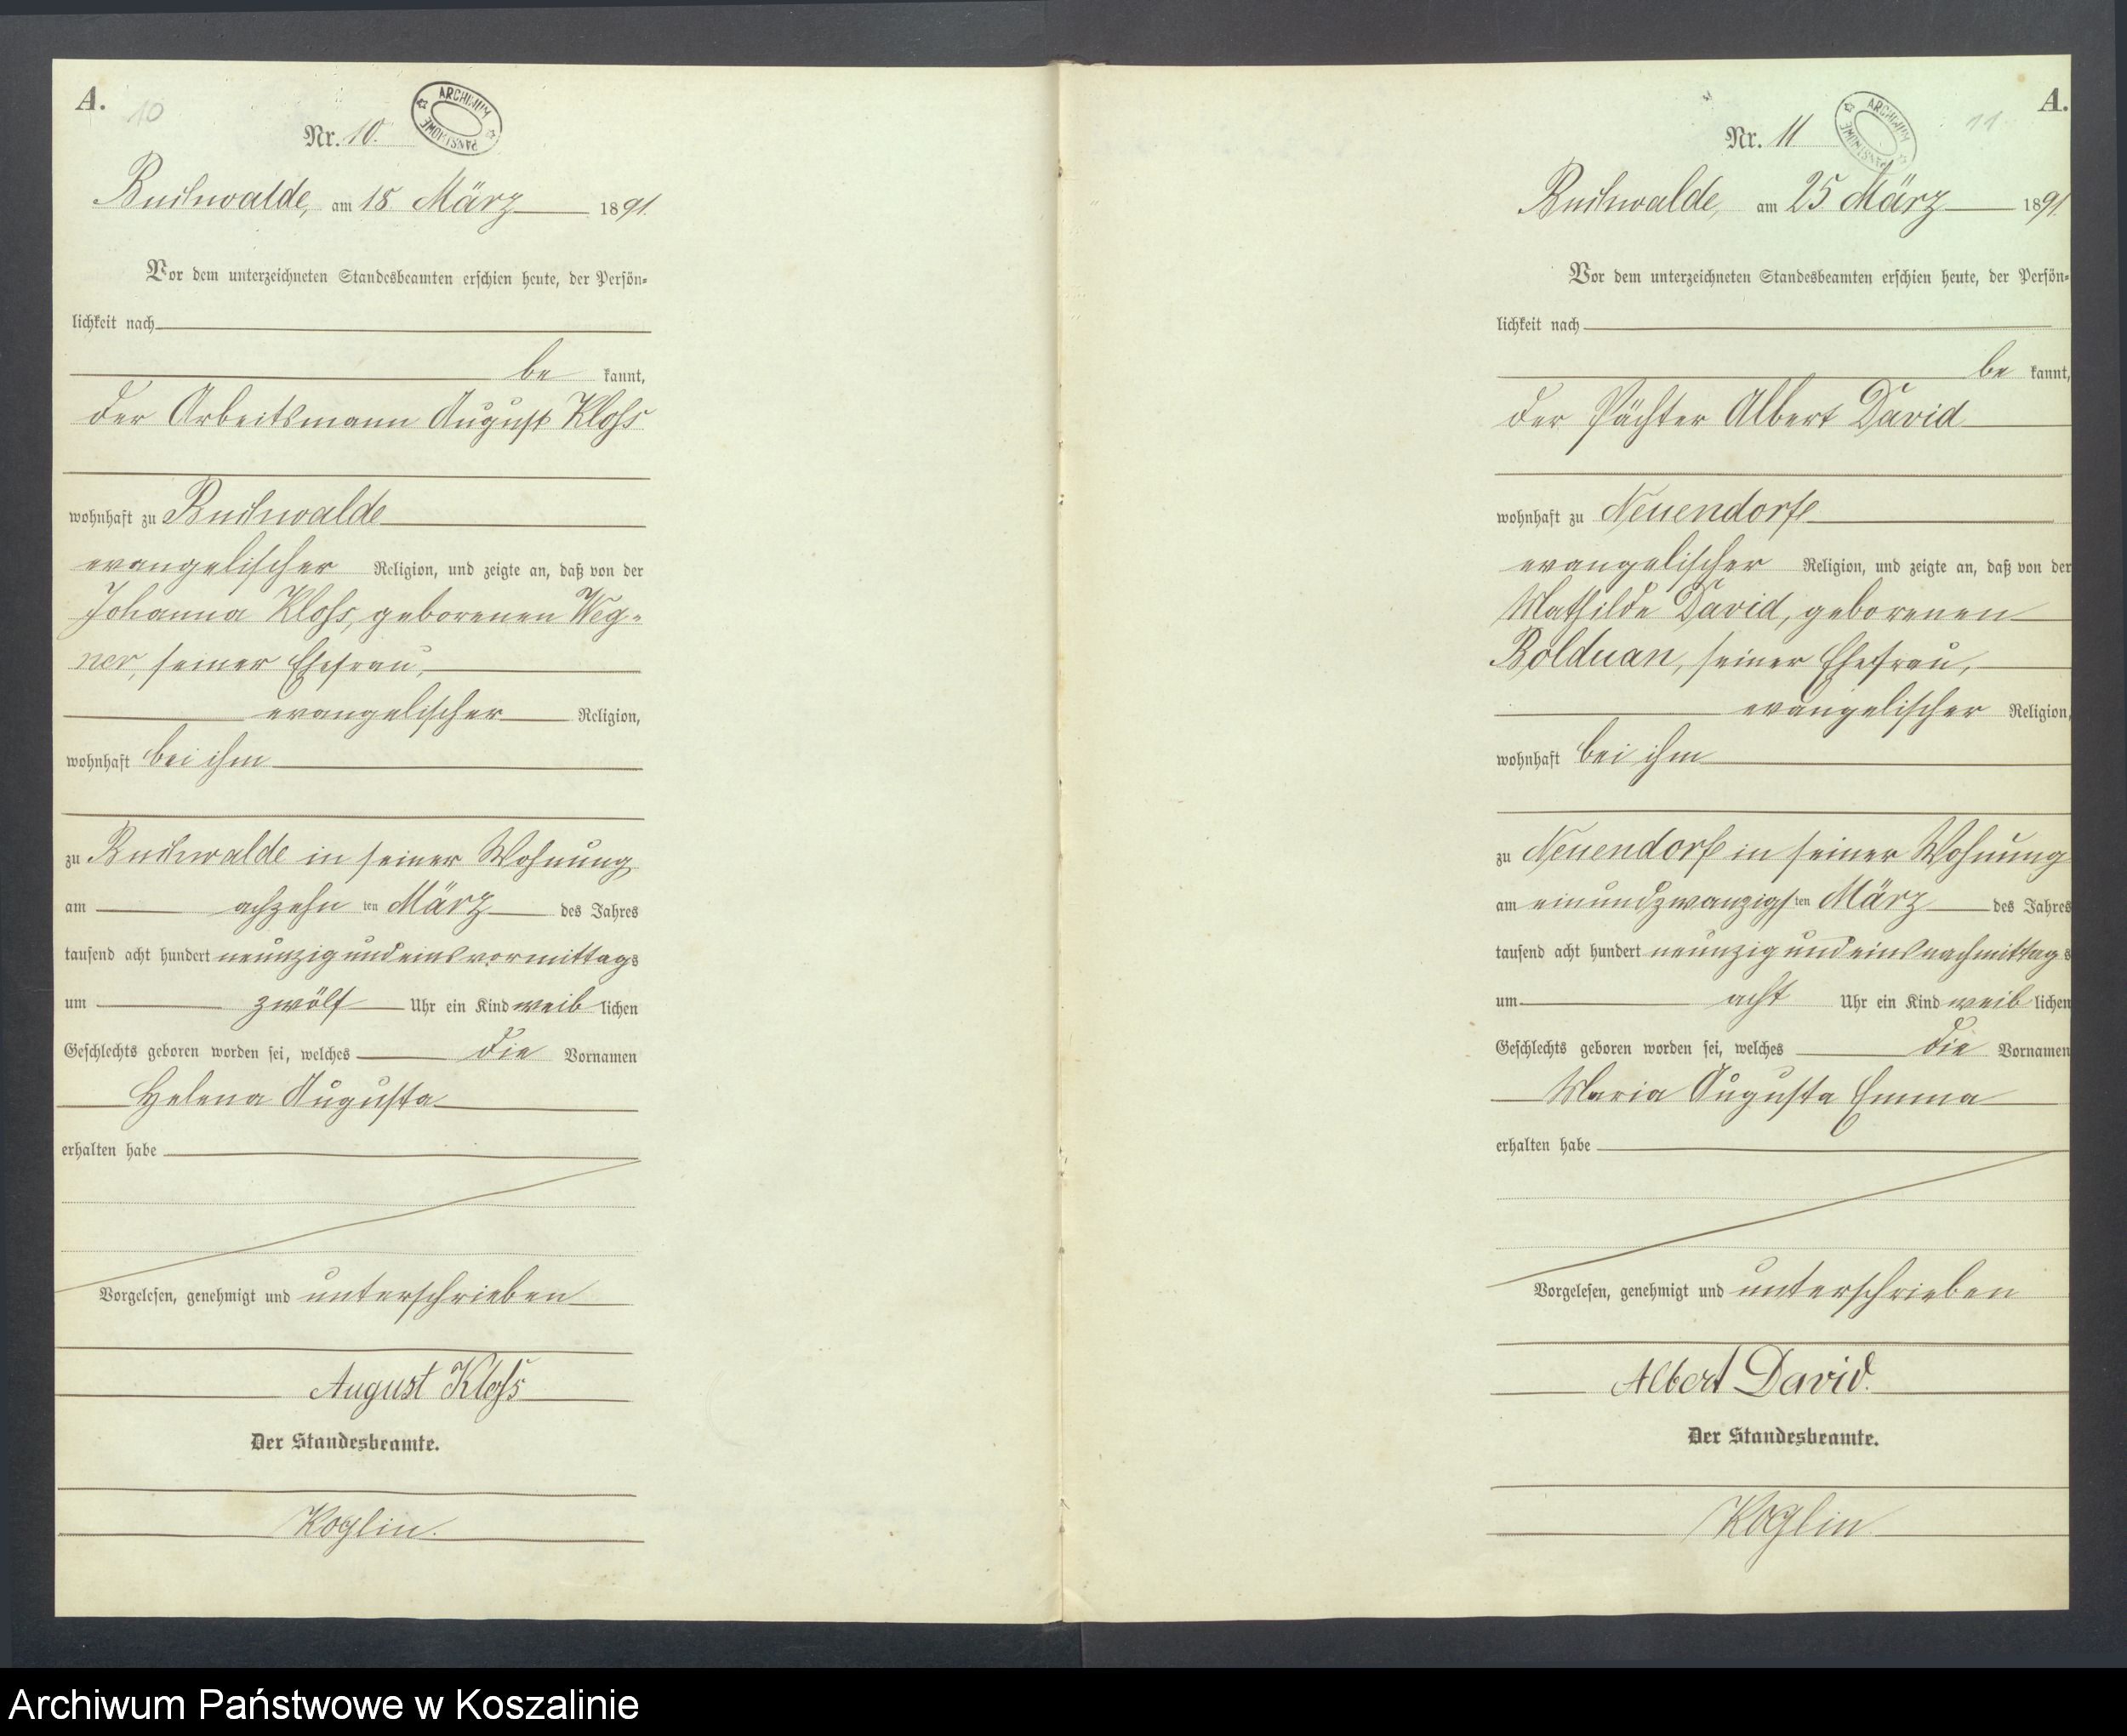 A.
10
ARCHIWUM PAŃSTWOWE
Nr. 10.
Buchwalde, am 18 März 1891.
Vor dem unterzeichneten Standesbeamten erschien heute, der Persön-
lichkeit nach
be kannt,
der Arbeitsmann August Kloſs
wohnhaft zu Buchwalde
evangelischer Religion, und zeigte an, daß von der
Johanna Kloſs, geborenen Weg-
ner, seiner Ehefrau,
evangelischer Religion,
wohnhaft bei ihm
zu Buchwalde in seiner Wohnung
am achzehn ten März des Jahres
tausend acht hundert neunzig und eins vormittags
um zwölf Uhr ein Kind weib lichen
Geschlechts geboren worden sei, welches die Vornamen
Helena Augusta
erhalten habe
Vorgelesen, genehmigt und unterschrieben
August Kloſs
Der Standesbeamte.
Koglin.
A.
11
ARCHIWUM PAŃSTWOWE
Nr. 11
Buchwalde, am 25. März 1891.
Vor dem unterzeichneten Standesbeamten erschien heute, der Persön-
lichkeit nach
be kannt,
der Pächter Albert David
wohnhaft zu Neuendorf
evangelischer Religion, und zeigte an, daß von der
Mathilde David, geborenen
Bolduan, seiner Ehefrau,
evangelischer Religion,
wohnhaft bei ihm
zu Neuendorf in seiner Wohnung
am einundzwanzigs ten März des Jahres
tausend acht hundert neunzig und eins nachmittags
um acht Uhr ein Kind weib lichen
Geschlechts geboren worden sei, welches die Vornamen
Maria Augusta Emma
erhalten habe
Vorgelesen, genehmigt und unterschrieben
Albert David.
Der Standesbeamte.
Koglin
Archiwum Państwowe w Koszalinie